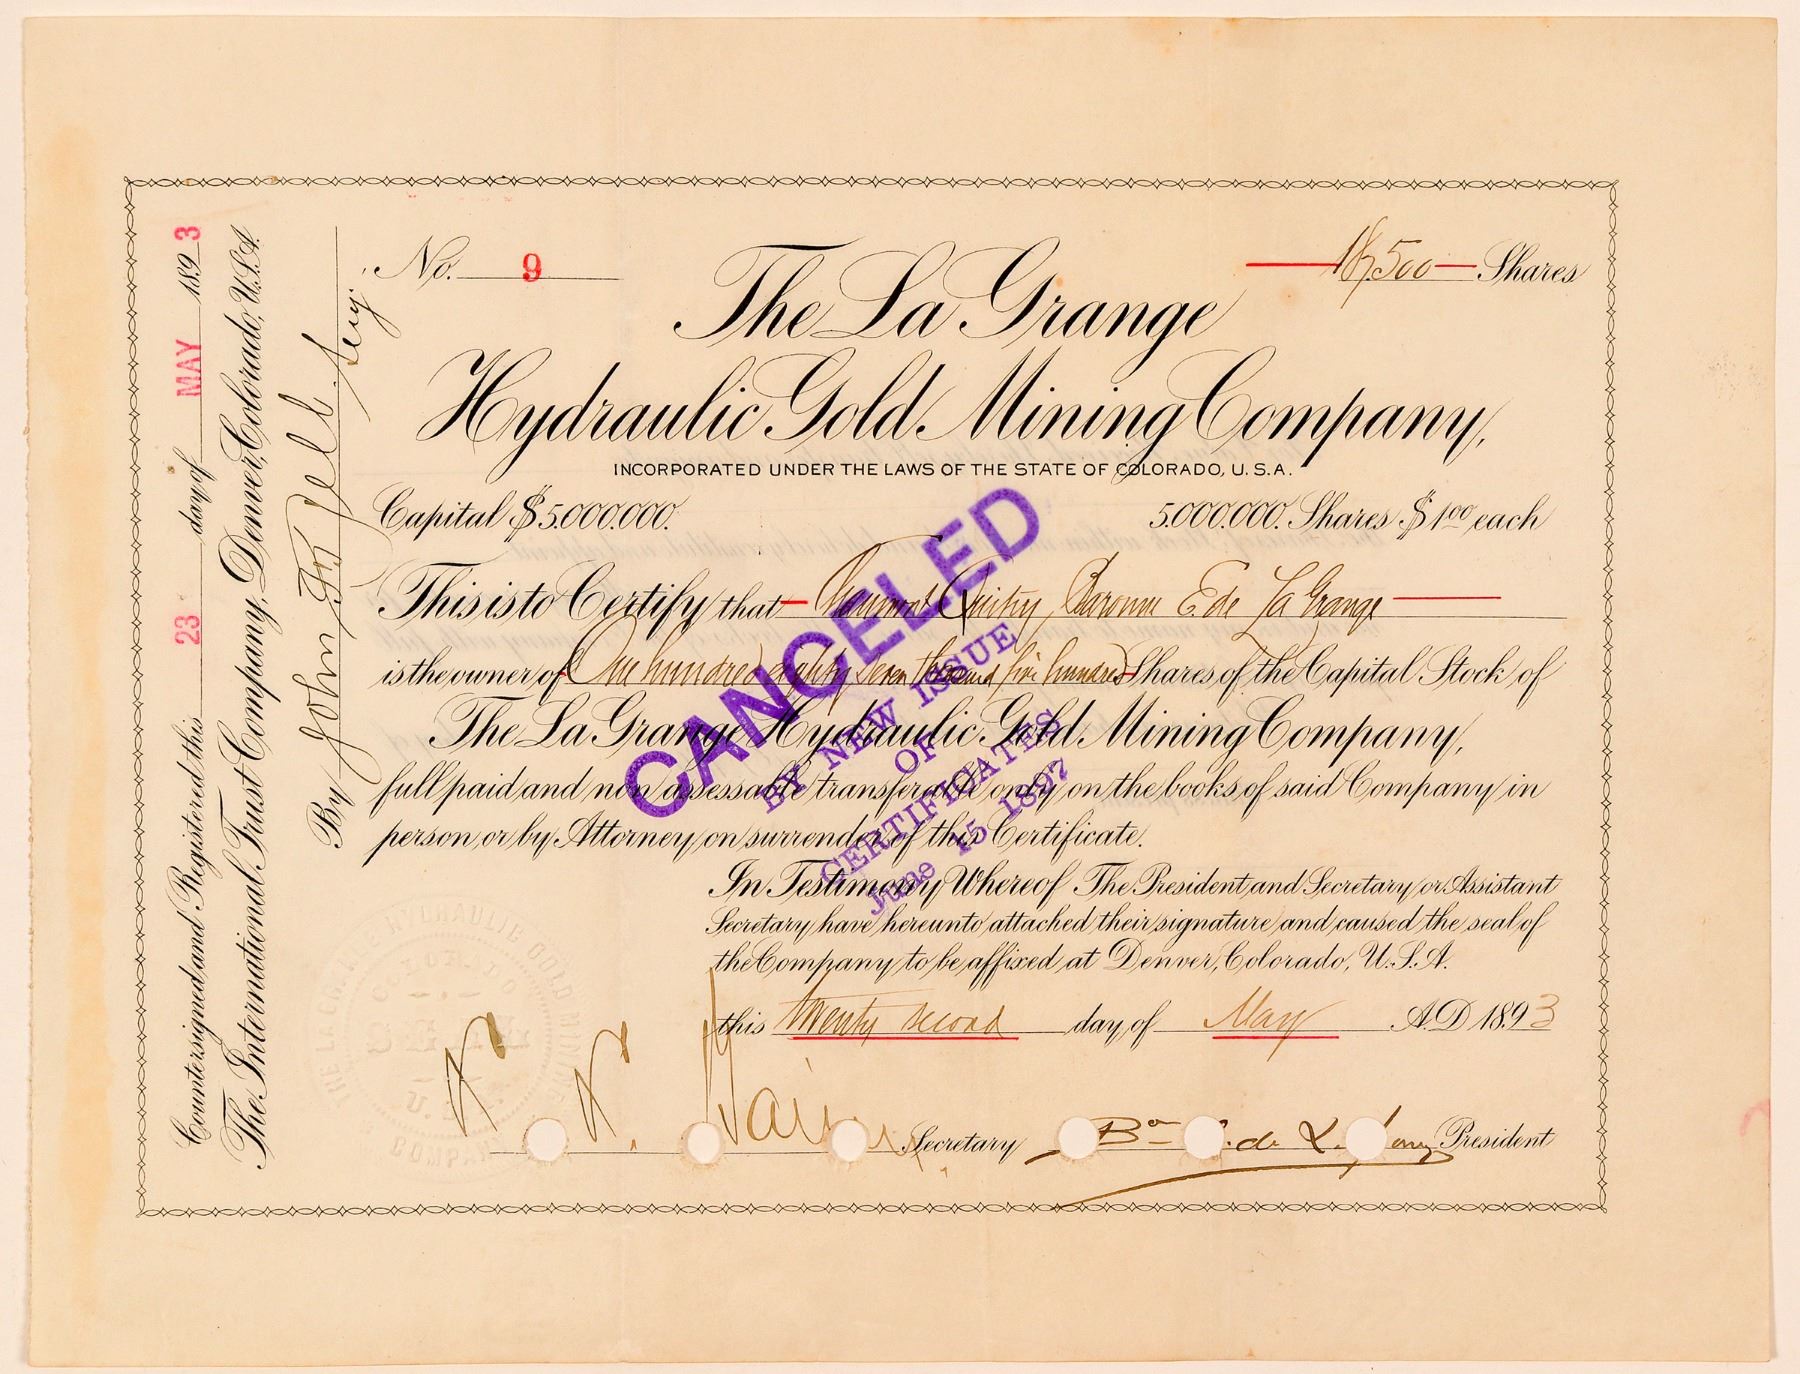 No. 9
187,500 Shares
The La Grange
Hydraulic Gold Mining Company,
INCORPORATED UNDER THE LAWS OF THE STATE OF COLORADO, U.S.A.
Capital $5.000.000.
5.000.000. Shares $1.00 each
This is to Certify that Baronne E. de La Grange
is the owner of One hundred eighty seven thousand five hundred Shares of the Capital Stock of
The La Grange Hydraulic Gold Mining Company,
full paid and non assessable transferable only on the books of said Company in
person or by Attorney on surrender of this Certificate.
In Testimony Whereof The President and Secretary or Assistant
Secretary have hereunto attached their signature and caused the seal of
the Company to be affixed at Denver, Colorado, U.S.A.
this twenty second day of May A.D. 1893
Secretary
President
CANCELED
BY NEW ISSUE
OF
CERTIFICATES
June 15 1897
Countersigned and Registered this 23 day of MAY 1893
The International Trust Company, Denver, Colorado, U.S.A.
By John
HYDRAULIC GOLD MINING
COMPANY
COLORADO
SEAL